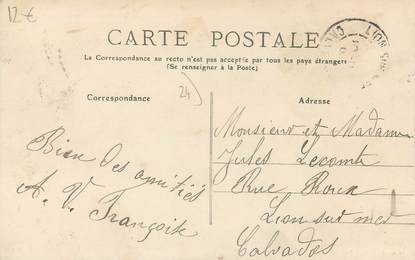 12€
CARTE POSTALE
La Correspondance au recto n'est pas acceptée par tous les pays étrangers
(Se renseigner à la Poste)
Correspondance
24
Adresse
Bien des amitiés
A. V. Françoise
Monsieur et Madame
Jules Lecomte
Rue
Lion sur mer
Calvados
LION SUR